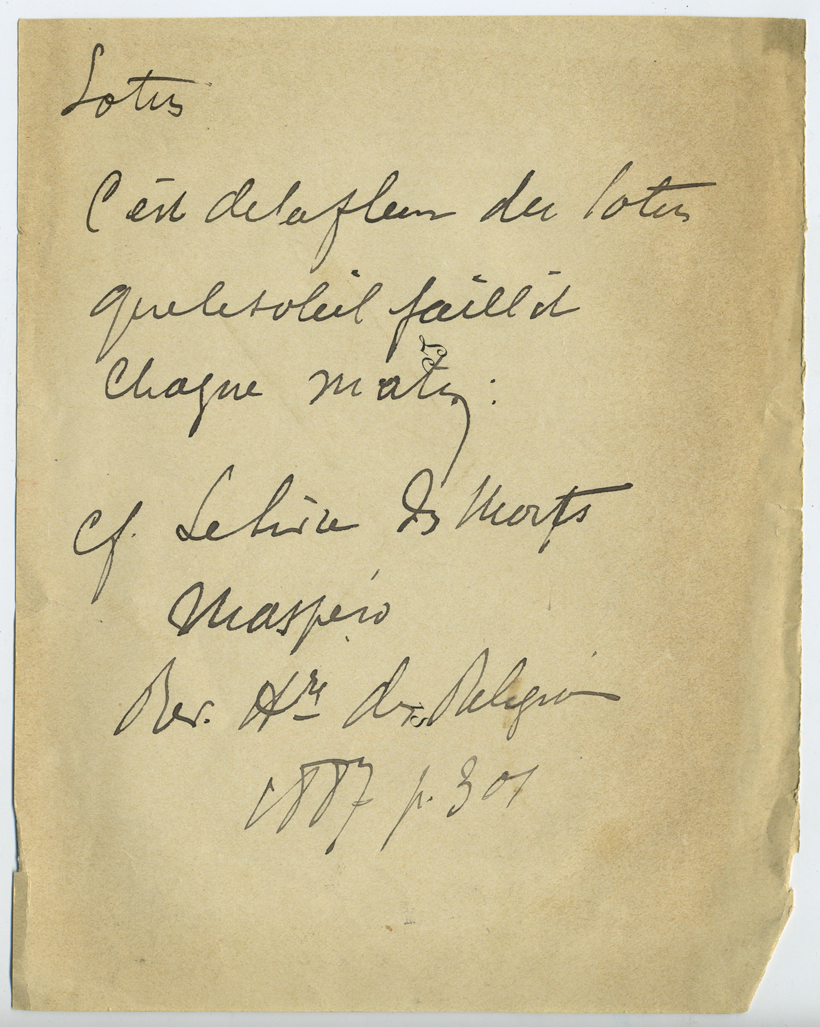 Lotus
C'est de la fleur du lotus
que le soleil jaillit
chaque matin :
cf. Le livre des Morts
Maspéro
Rev. Hre des Religions
1887 p. 301